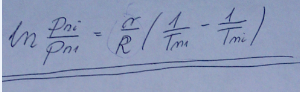 ln pni/pni = r/R ( 1/Tni - 1/Tni )